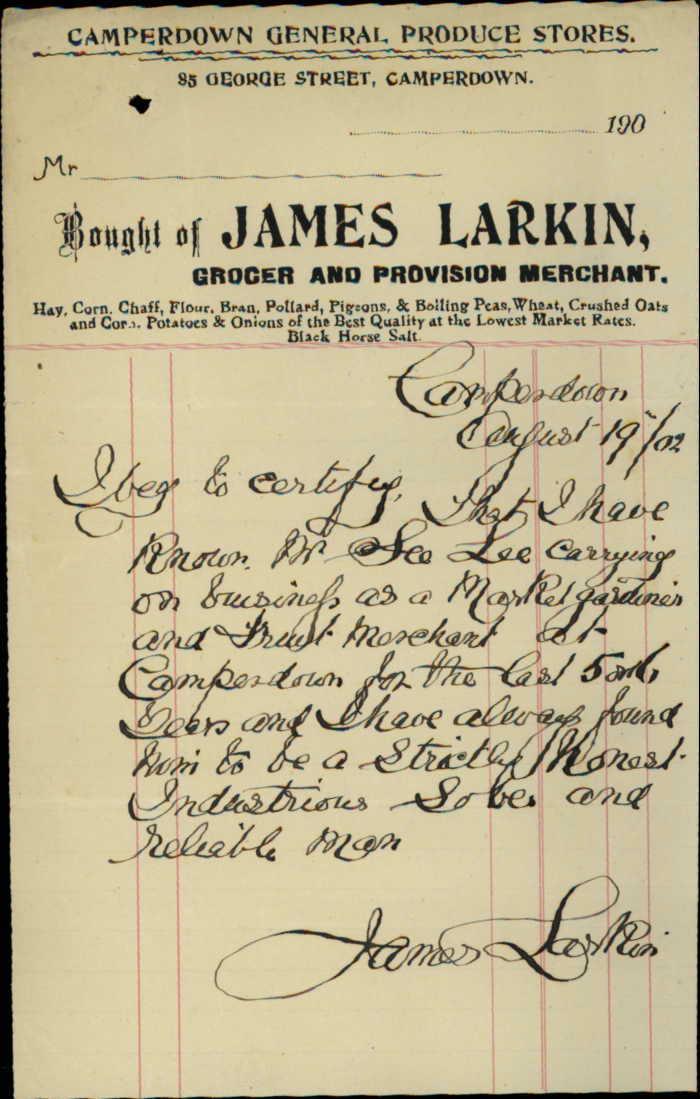 CAMPERDOWN GENERAL PRODUCE STORES.
85 GEORGE STREET, CAMPERDOWN.
190
Mr
Bought of JAMES LARKIN,
GROCER AND PROVISION MERCHANT.
Hay, Corn, Chaff, Flour, Bran, Pollard, Pigeons, & Boiling Peas, Wheat, Crushed Oats
and Corn. Potatoes & Onions of the Best Quality at the Lowest Market Rates.
Black Horse Salt.
Camperdown
August 19th/02
I beg to certify, that I have
Known Mr See Lee carrying
on business as a Market gardiner
and Fruit Merchant at
Camperdown for the last 5 or 6
Years and I have always found
him to be a Strictly Honest
Industrious Sober and
reliable Man
James Larkin